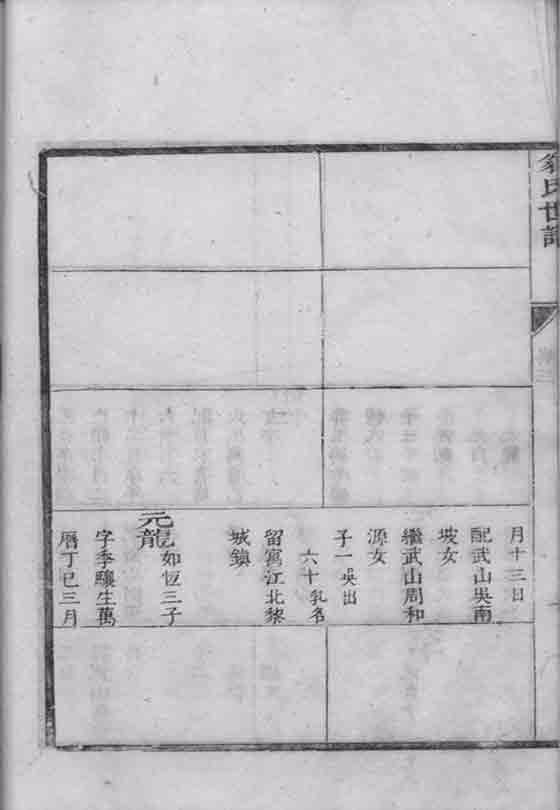 翁氏世譜
月十三日
配武山吳南
坡女
繼武山周和
源女
子一吳出
六十乳名
留寓江北黎
城鎮
元龍
如恆三子
字季驤生萬
曆丁巳三月